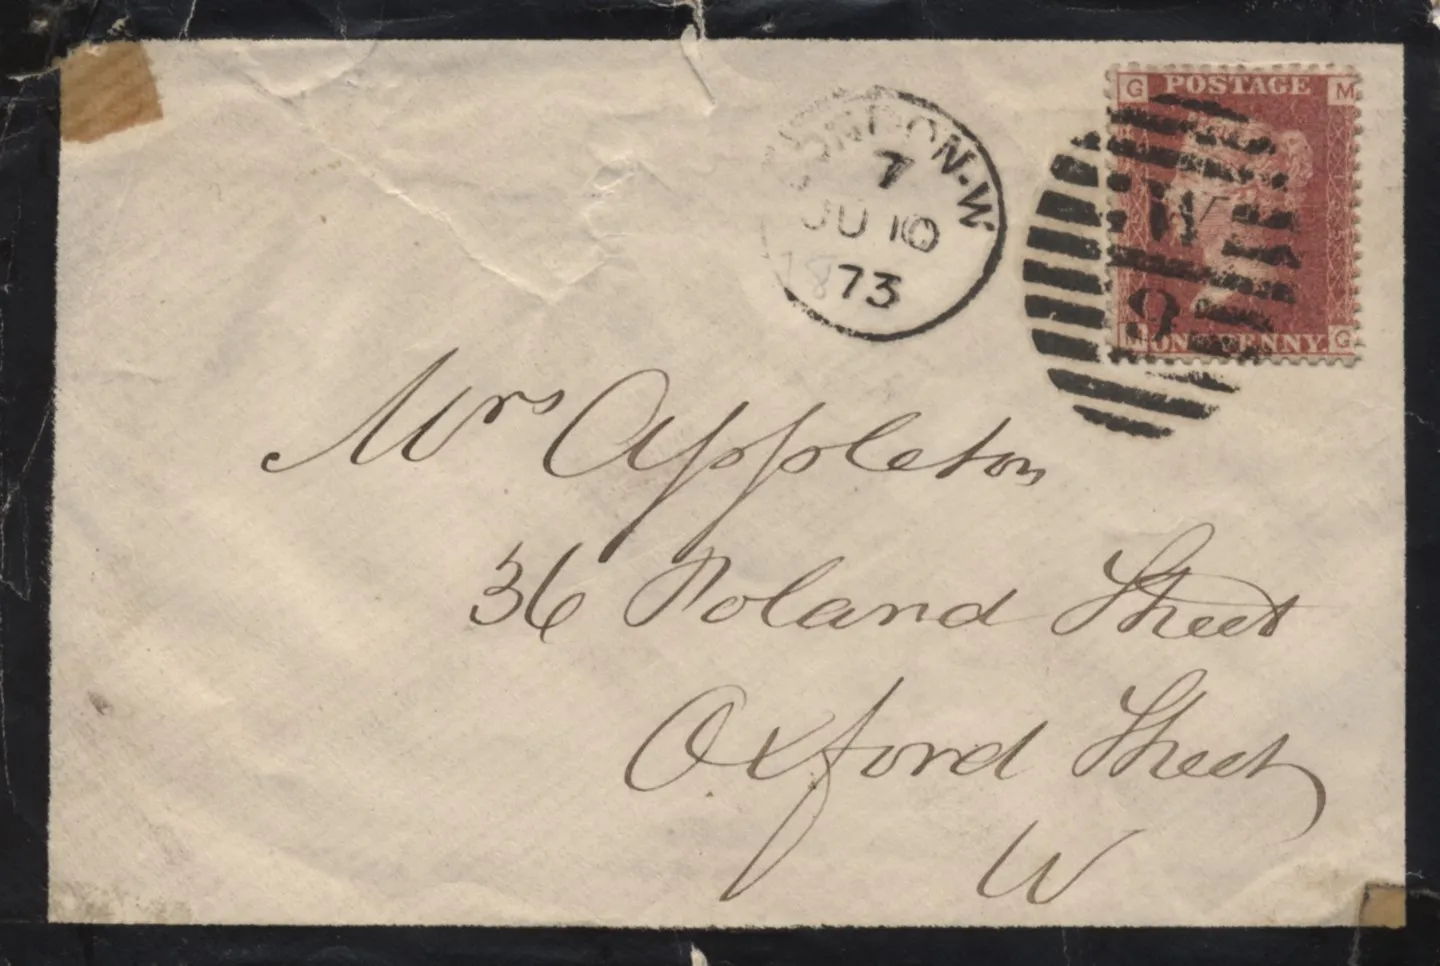 G POSTAGE M
LONDON-W
7
JU 10
1873
W
9
M ONE PENNY G
Mrs Appleton
36 Poland Street
Oxford Street
W